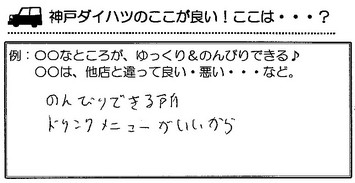 神戸ダイハツのここが良い！ここは・・・？
例：〇〇なところが、ゆっくり＆のんびりできる♪
〇〇は、他店と違って良い・悪い・・・など。
のんびりできる所
ドリンクメニューがいいから